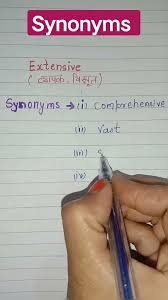 Synonyms
Extensive
(व्यापक, विस्तृत)
Synonyms → (i) Comprehensive
(ii) Vast
(iii) S
(iv)